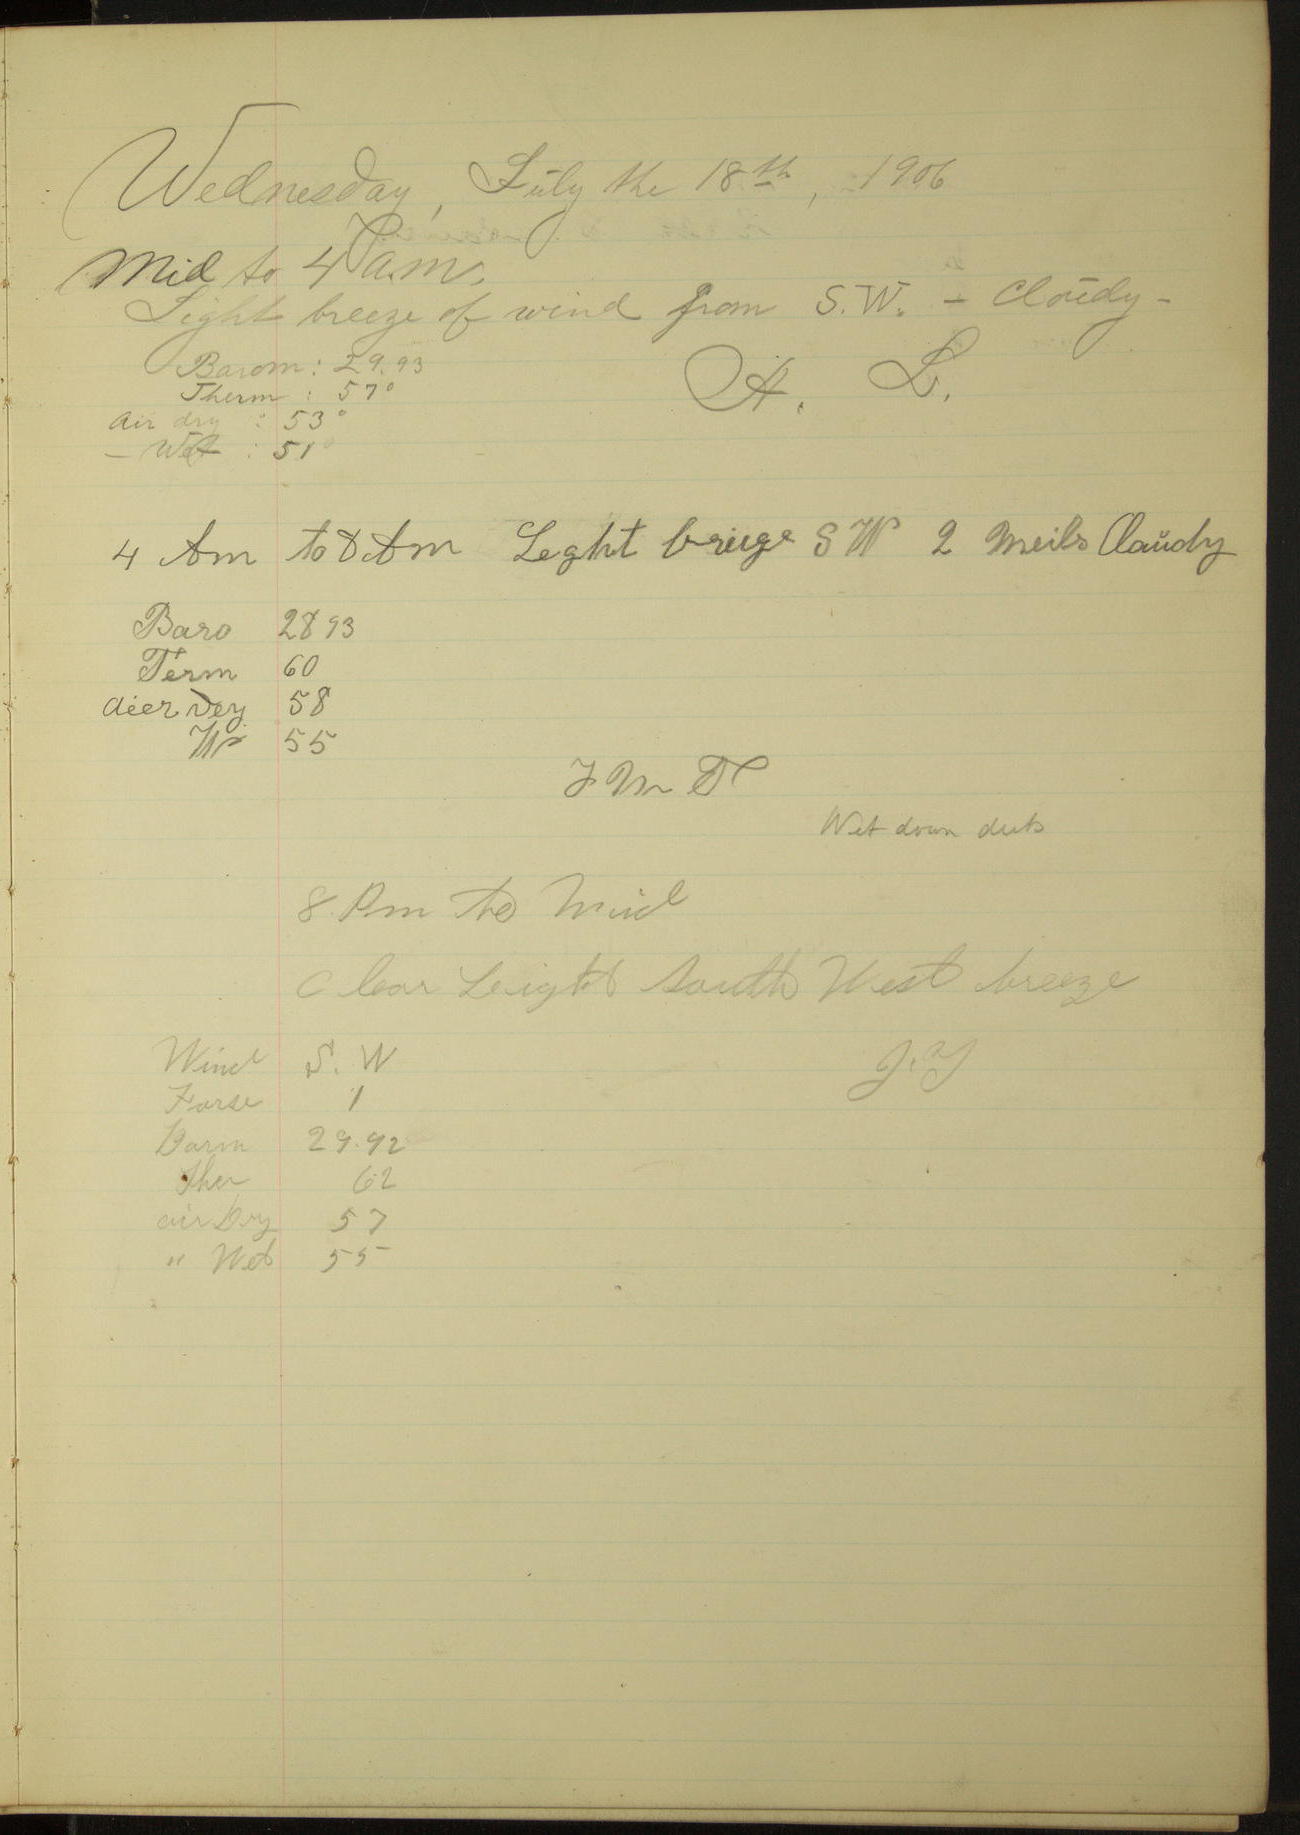 Wednesday, July the 18th, 1906
Mid to 4 a.m.
Light breeze of wind from S.W. - Cloudy -
Barom : 29.93
Therm : 57°
A. L.
Air dry : 53°
- Wet : 51°
4 Am to 8 Am Leght briege S W 2 Meils Claudy
Baro 28 93
Term 60
aier drey 58
W 55
F M T
Wet down decks
8 Pm to Mid
Clear Leight South West breeze
Wind S. W
J. Y
Forse 1
Barm 29.92
Ther 62
air Dry 57
" Wet 55